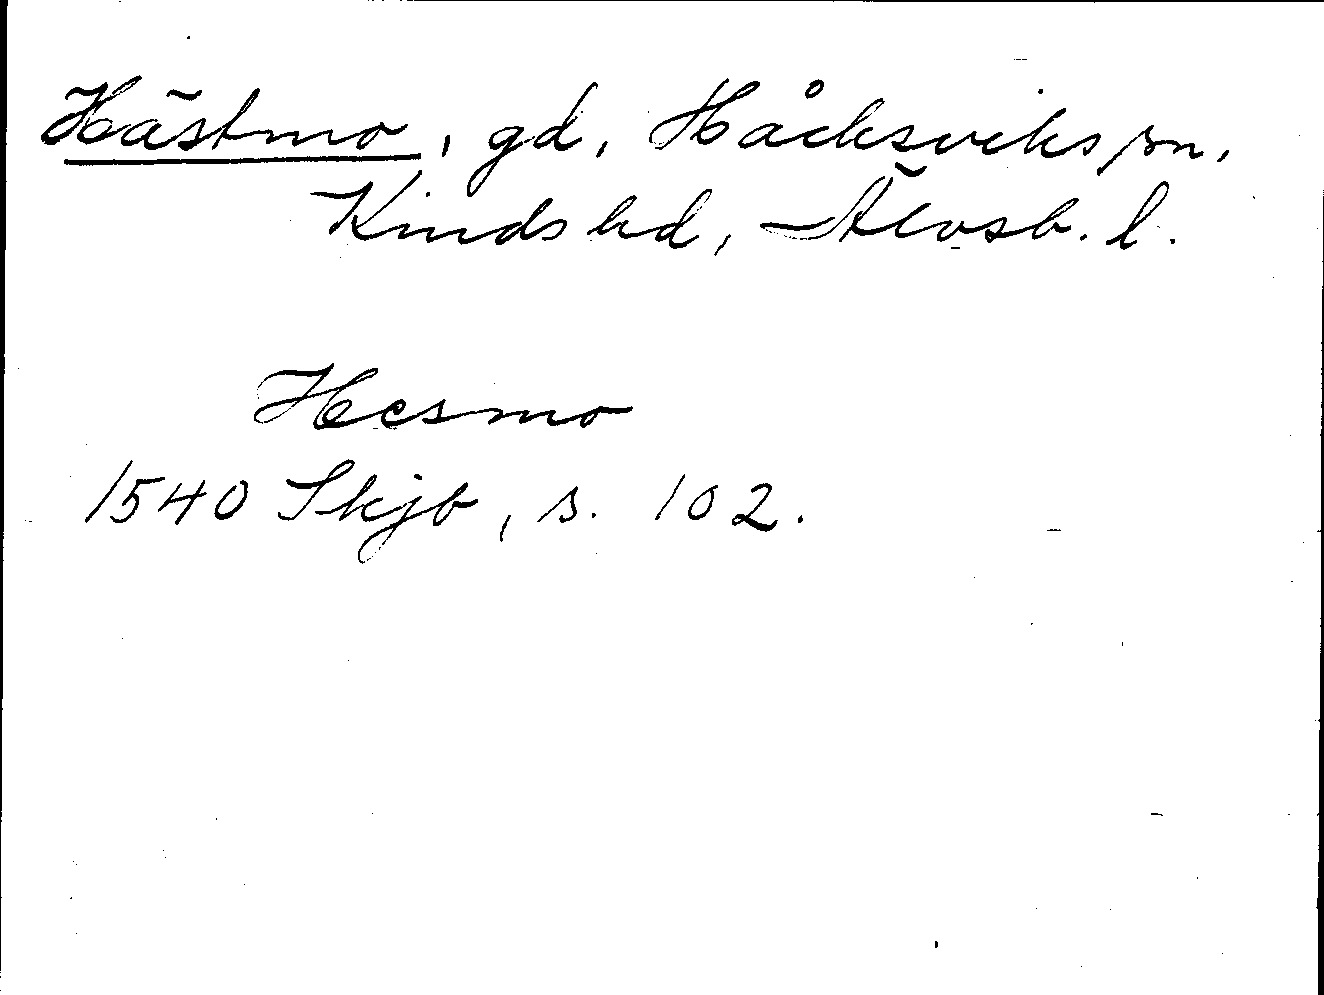 Hästmo, gd, Håcksviks sn,
Kinds hd, Älvsb. l.
Hesmo
1540 Skjb, s. 102.